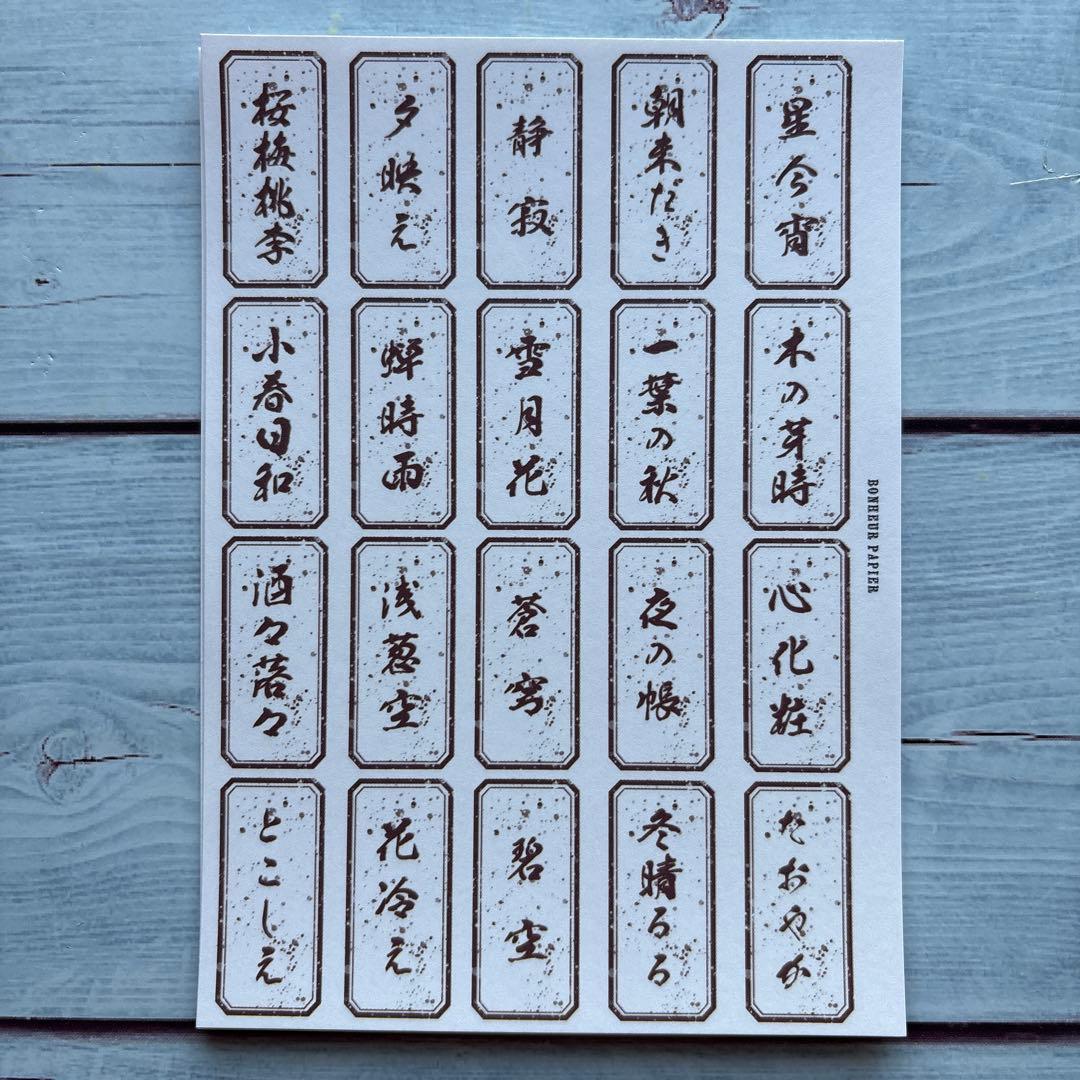 桜梅桃李
夕映え
静寂
朝未だき
星今宵
小春日和
蝉時雨
雪月花
一葉の秋
木の芽時
洒々落々
浅葱空
蒼穹
夜の帳
心化粧
とこしえ
花冷え
碧空
冬晴るる
たおやか
BONHEUR PAPIER